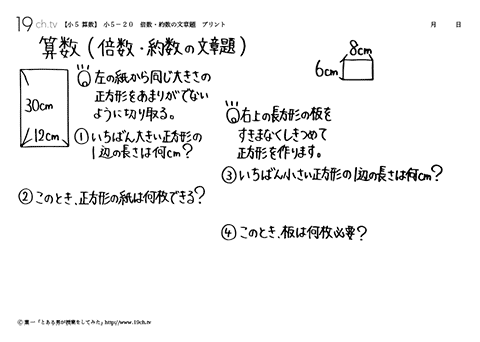 19ch.tv 【小5 算数】 小5－20 倍数・約数の文章題 プリント 月 日
算数(倍数・約数の文章題)
30cm
12cm
Q 左の紙から同じ大きさの
正方形をあまりがでない
ように切り取る。
① いちばん大きい正方形の
1辺の長さは何cm?
② このとき、正方形の紙は何枚できる?
8cm
6cm
Q 右上の長方形の板を
すきまなくしきつめて
正方形を作ります。
③ いちばん小さい正方形の1辺の長さは何cm?
④ このとき、板は何枚必要?
© 葉一「とある男が授業をしてみた」http://www.19ch.tv